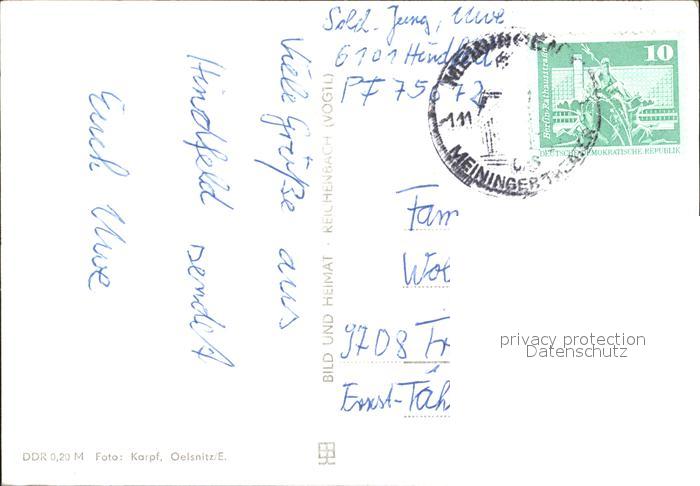 Viele Grüße aus
Hindfeld sendet
Euch Uwe
Sold. Jung, Uwe
6101 Hindfeld
PF 75672
MEININGEN
-1.11.
MEININGER THEATER
10
Berlin-Rathausstraße
DEUTSCHE DEMOKRATISCHE REPUBLIK
Fam
Wol
9708 Tr
Ernst-Täh
BILD UND HEIMAT · REICHENBACH (VOGTL)
DDR 0,20 M Foto: Karpf, Oelsnitz/E.
privacy protection
Datenschutz